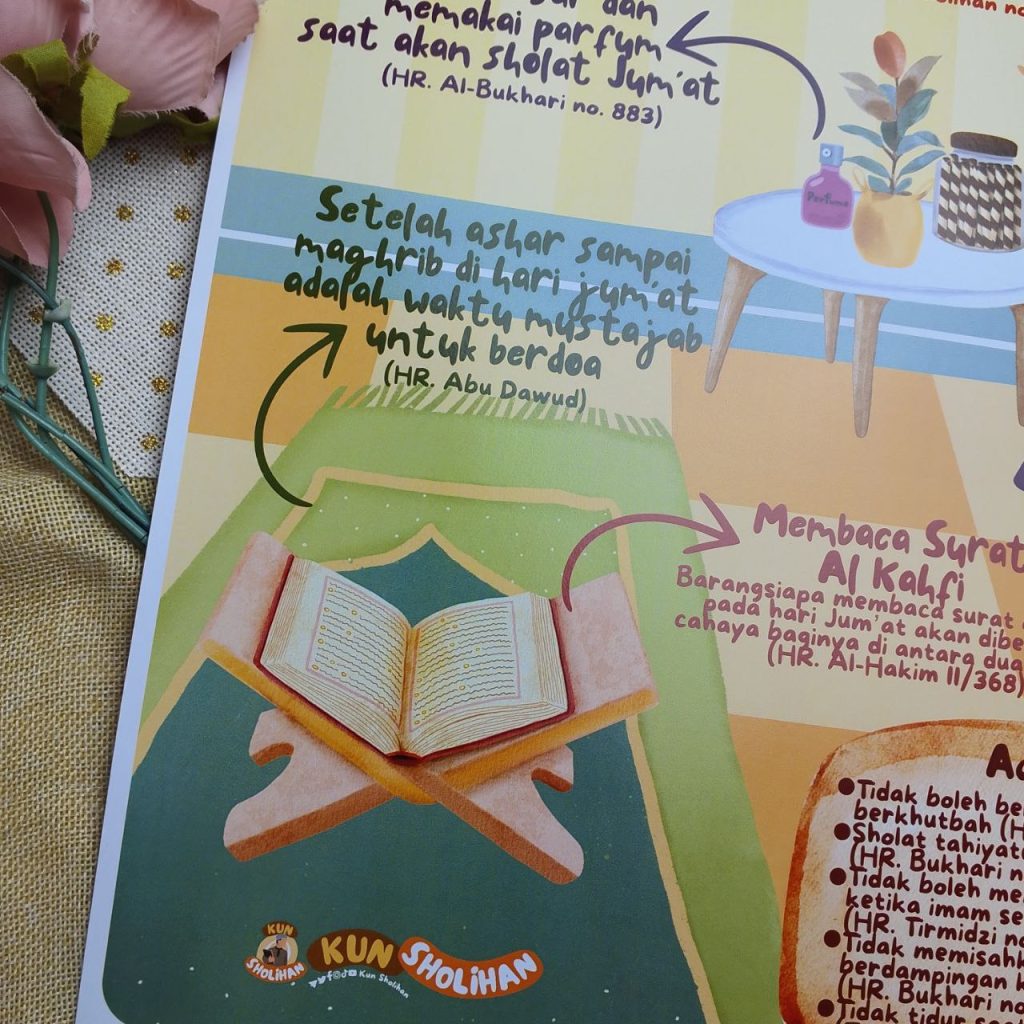 dan
memakai parfum
saat akan sholat Jum'at
(HR. Al-Bukhari no. 883)
Perfume
Setelah ashar sampai
maghrib di hari jum'at
adalah waktu mustajab
untuk berdoa
(HR. Abu Dawud)
Membaca Surat
Al Kahfi
Barangsiapa membaca surat
pada hari Jum'at akan
cahaya baginya di antara
(HR. Al-Hakim II/368)
Tidak boleh
berkhutbah
Sholat
(HR. Bukhari
Tidak boleh
ketika imam
(HR. Tirmidzi
Tidak
berdampingan
(HR. Bukhari
Tidak tidur
KUN
SHOLIHAN
KUN SHOLIHAN
Kun Sholihan